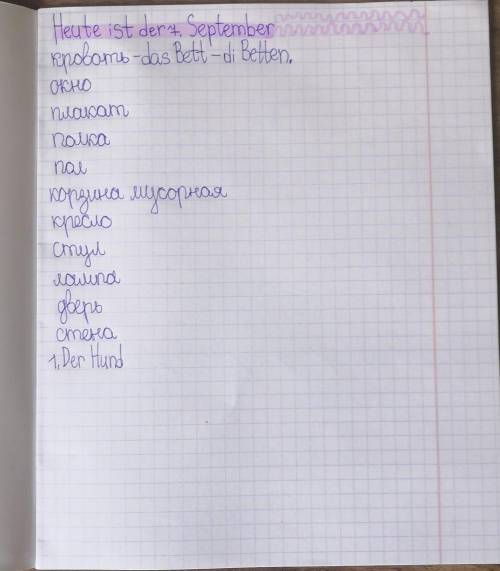 Heute ist der 7. September
кровать - das Bett - di Betten.
окно
плакат
полка
пол
корзина мусорная
кресло
стул
лампа
дверь
стена
1. Der Hund